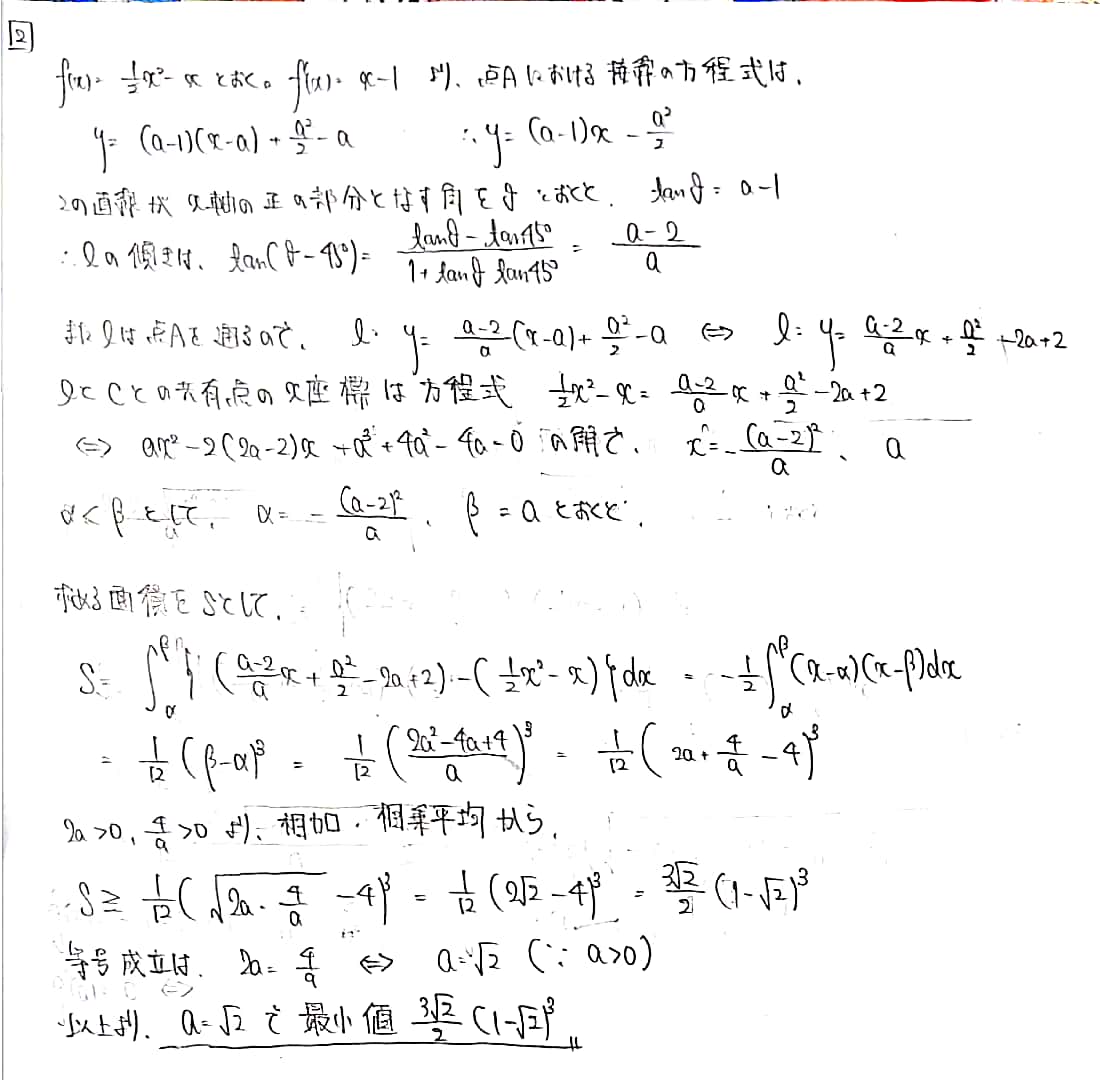 2
f(x)= 1/2 x²-x とおく。 f'(x)= x-1 より、点Aにおける接線の方程式は、
y= (a-1)(x-a) + a²/2 - a ∴ y= (a-1)x - a²/2
この直線が x軸の正の部分となす角をθとおくと、 tanθ = a-1
∴ lの傾きは、 tan(θ-45°)= (tanθ - tan45°)/(1+tanθ tan45°) = (a-2)/a
また lは点Aを通るので、 l: y= (a-2)/a (x-a) + a²/2 - a ⇔ l: y= (a-2)/a x + a²/2 +-2a+2
lとCとの共有点のx座標は方程式 1/2 x²-x = (a-2)/a x + a²/2 -2a+2
⇔ ax²-2(2a-2)x +a³+4a²-4a=0 の解で、 x=-(a-2)²/a 、 a
α<βとして、 α= - (a-2)²/a 、 β = a とおくと、
求める面積をSとして、
S= ∫_α^β { ((a-2)/a x + a²/2 -2a+2) - (1/2 x²-x) } dx = -1/2 ∫_α^β (x-α)(x-β)dx
= 1/12 (β-α)³ = 1/12 ((2a²-4a+4)/a)³ = 1/12 (2a + 4/a - 4)³
2a>0, 4/a>0 より、相加・相乗平均から、
S≧ 1/12 (√(2a・4/a) -4)³ = 1/12 (2√2 -4)³ = 3√2/2 (1-√2)³
等号成立は、 2a= 4/a ⇔ a=√2 (∵ a>0)
以上より、 a=√2 で 最小値 3√2/2 (1-√2)³